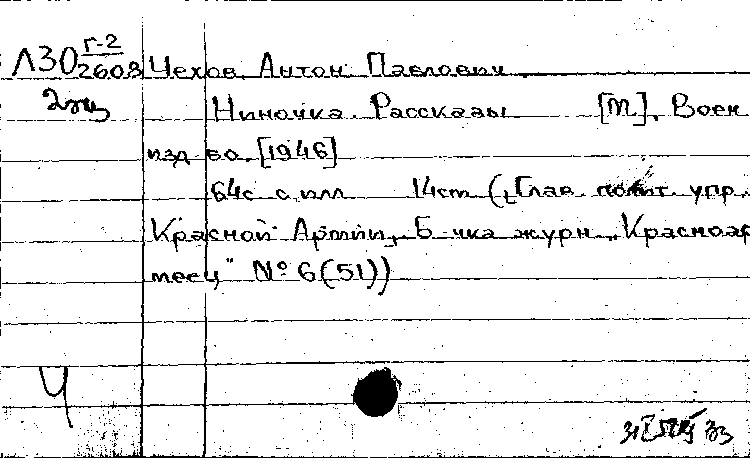 Л30 Г-2
2603 Чехов, Антон Павлович.
2 экз
Ниночка. Рассказы [М.], Воен
изд-во, [1946]
64с с илл 14см (Глав. полит. упр.
Красной Армии, Б-чка журн. „Красноар
меец" № 6(51))
Ч